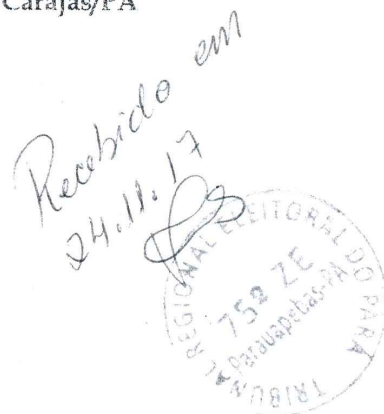 Carajás/PA
Recebido em
24.11.17
TRIBUNAL REGIONAL ELEITORAL DO PARÁ
75ª ZE
Parauapebas-PA